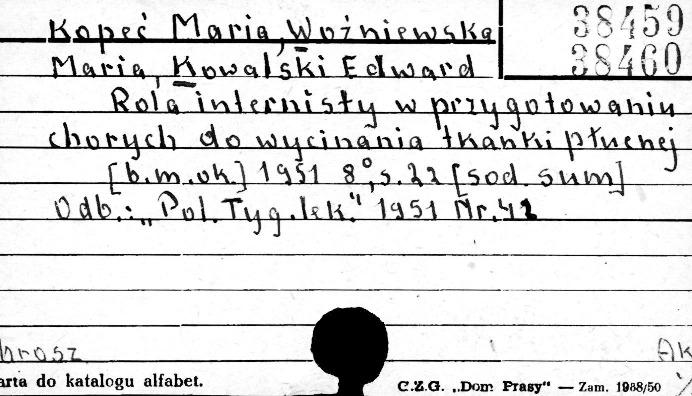 38459
Kopeć Maria, Woźniewska
38460
Maria, Kowalski Edward
Rola internisty w przygotowaniu
chorych do wycinania tkanki płucnej
[b.m.ok.] 1951 8°, s. 22 [sod. sum]
Odb.: „Pol. Tyg. lek." 1951 Nr. 42
brosz.
Ak
arta do katalogu alfabet.
C.Z.G. „Dom Prasy" — Zam. 1988/50